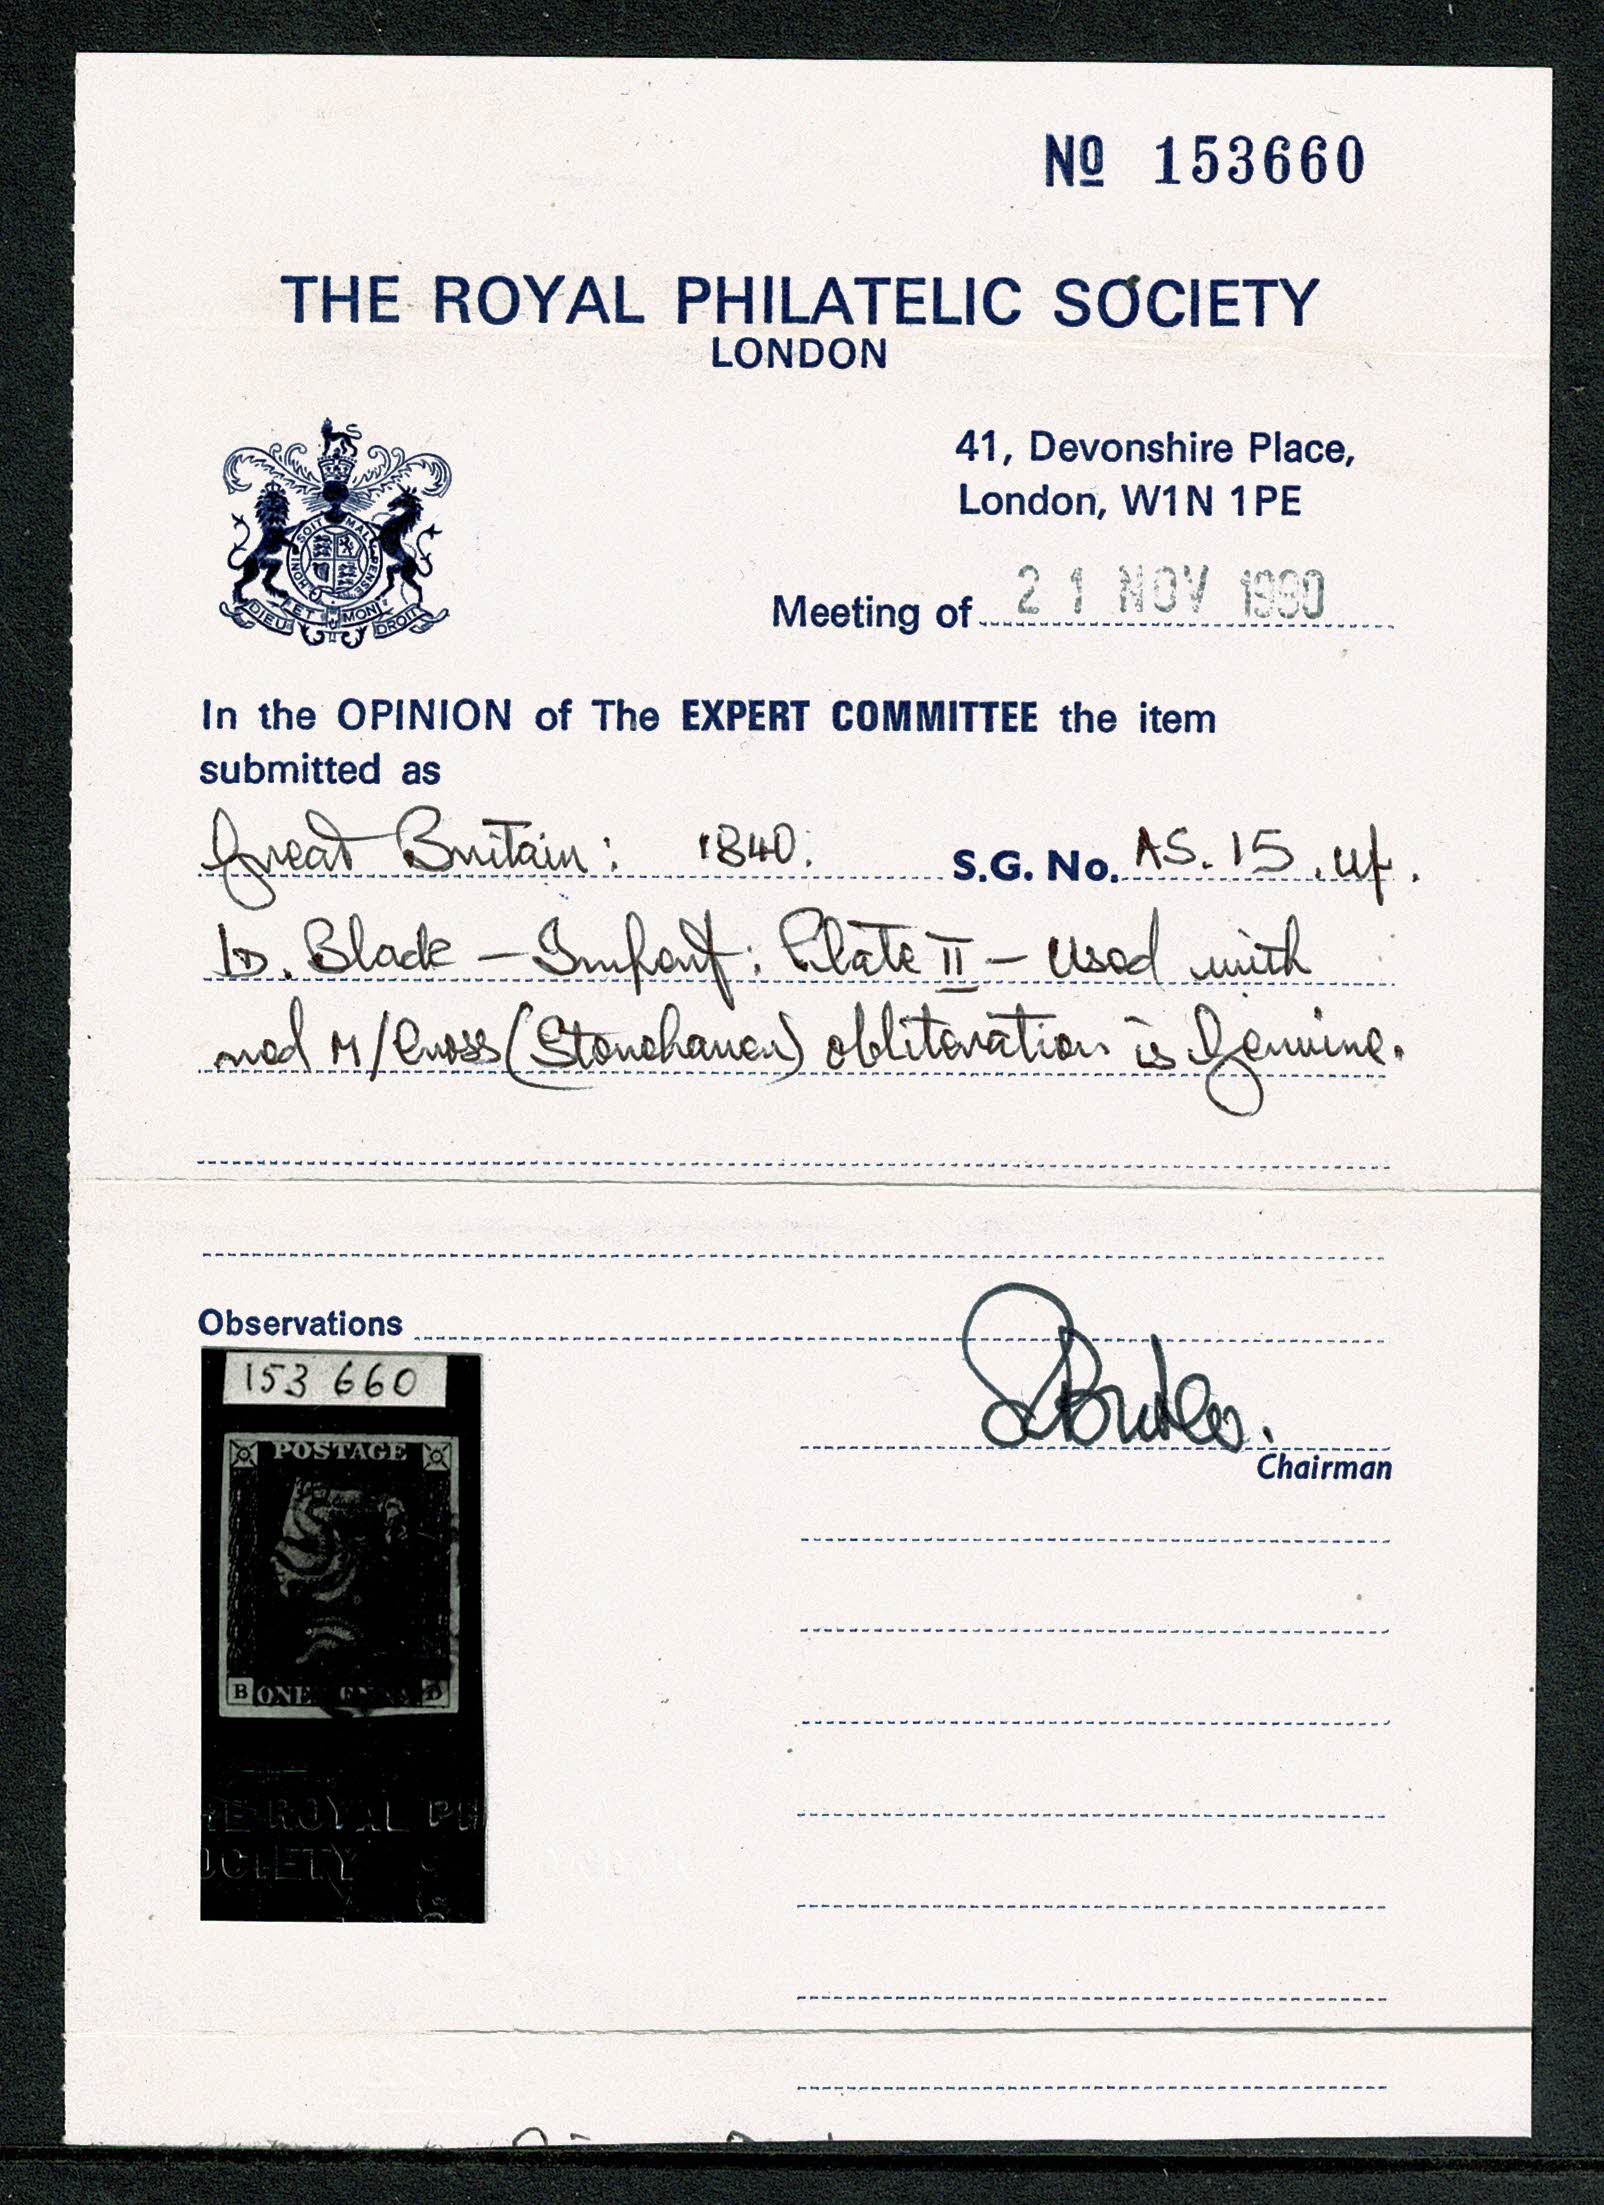 Nº 153660
THE ROYAL PHILATELIC SOCIETY
LONDON
41, Devonshire Place,
London, W1N 1PE
HONI SOIT MAL PENSE
DIEU ET MON DROIT
Meeting of 21 NOV 1990
In the OPINION of The EXPERT COMMITTEE the item
submitted as
Great Britain: 1840. S.G. No. AS.15.uf.
1D. Black – Imperf: Plate II – Used with
red M/Cross (Stonehaven) obliteration is Genuine.
Observations
Chairman
153 660
POSTAGE
B ONE PENNY D
HE ROYAL PH
OCIETY